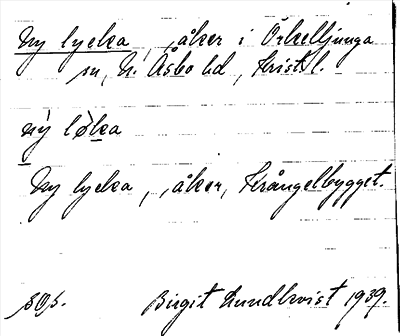 Ny lycka, åker i Örkelljunga
sn, N. Åsbo hd, Krist l.
nỳ lø̀ka
Ny lycka, åker, Krångelbygget.
sos.  Birgit Lundkvist 1939.